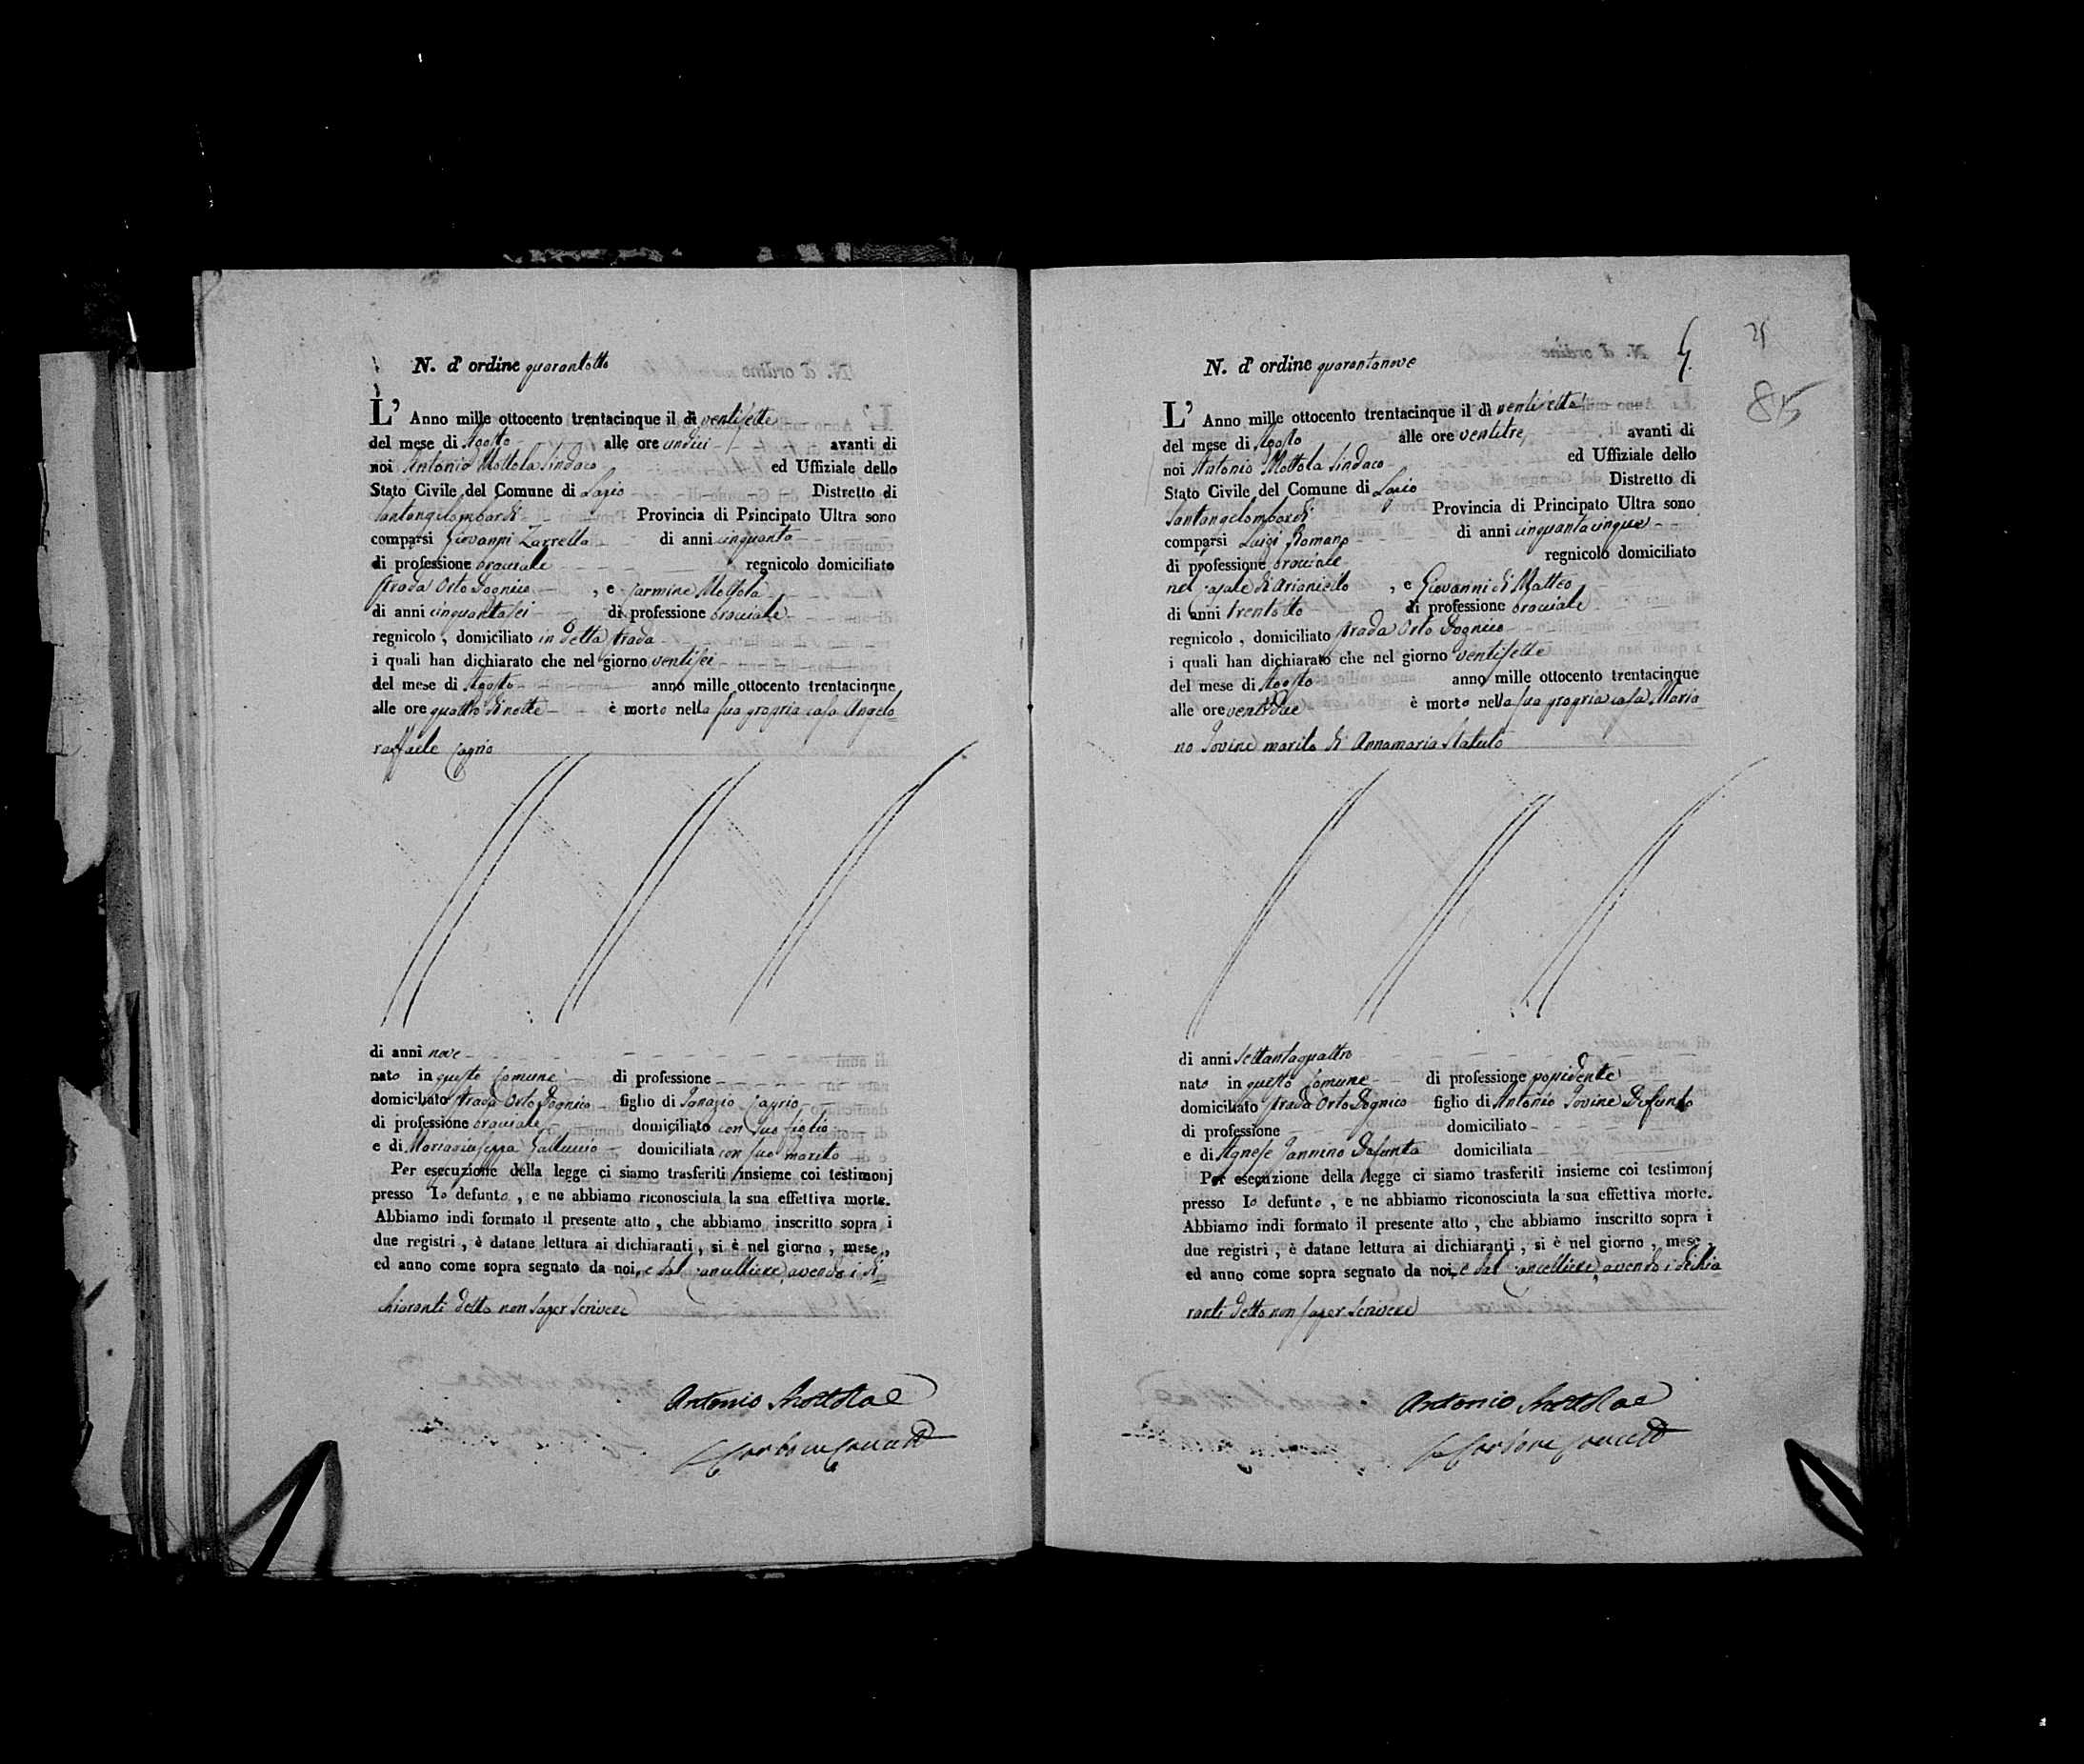 N. d' ordine quarantotto
L' Anno mille ottocento trentacinque il dì ventisette
del mese di Agosto alle ore undici avanti di
noi Antonio Mottola Sindaco ed Uffiziale dello
Stato Civile del Comune di Lapio Distretto di
Santangelombardi Provincia di Principato Ultra sono
comparsi Giovanni Zarrella di anni cinquanta
di professione bracciale regnicolo domiciliato
strada Orto Dognico , e Carmine Mottola
di anni cinquantasei di professione bracciale
regnicolo , domiciliato in detta strada
i quali han dichiarato che nel giorno ventisei
del mese di Agosto anno mille ottocento trentacinque
alle ore quattro di notte è morto nella sua propria casa Angelo=
raffaele Caprio
di anni nove
nato in questo Comune di professione
domiciliato strada Orto Dognico figlio di Ignazio Caprio
di professione bracciale domiciliato con suo figlio
e di Mariagiuseppa domiciliata con suo marito
Per esecuzione della legge ci siamo trasferiti insieme coi testimonj
presso lo defunto , e ne abbiamo riconosciuta la sua effettiva morte.
Abbiamo indi formato il presente atto , che abbiamo inscritto sopra i
due registri , è datane lettura ai dichiaranti , si è nel giorno , mese ,
ed anno come sopra segnato da noi, e dal Cancelliere, avendo i di=
chiaranti detto non saper scrivere
Antonio Mottola
Carbone Cancell
N. d' ordine quarantanove
5
85
L' Anno mille ottocento trentacinque il dì ventisette
del mese di Agosto alle ore ventitre avanti di
noi Antonio Mottola Sindaco ed Uffiziale dello
Stato Civile del Comune di Lapio Distretto di
Santangelombardi Provincia di Principato Ultra sono
comparsi Luigi Romano di anni cinquantacinque
di professione bracciale regnicolo domiciliato
nel Casale di Arianiello , e Giovanni di Matteo
di anni trentotto di professione bracciale
regnicolo , domiciliato strada Orto Dognico
i quali han dichiarato che nel giorno ventisette
del mese di Agosto anno mille ottocento trentacinque
alle ore ventidue è morto nella sua propria casa Maria
no Iovine marito di Annamaria Statuto
di anni settantaquattro
nato in questo Comune di professione possidente
domiciliato strada Orto Dognico figlio di Antonio Iovine Defunto
di professione domiciliato
e di Agnese Iannino Defunta domiciliata
Per esecuzione della legge ci siamo trasferiti insieme coi testimonj
presso lo defunto , e ne abbiamo riconosciuta la sua effettiva morte.
Abbiamo indi formato il presente atto , che abbiamo inscritto sopra i
due registri , è datane lettura ai dichiaranti , si è nel giorno , mese ,
ed anno come sopra segnato da noi, e dal Cancelliere, avendo i dichia
ranti detto non saper scrivere
Antonio Mottola
Carbone Cancell